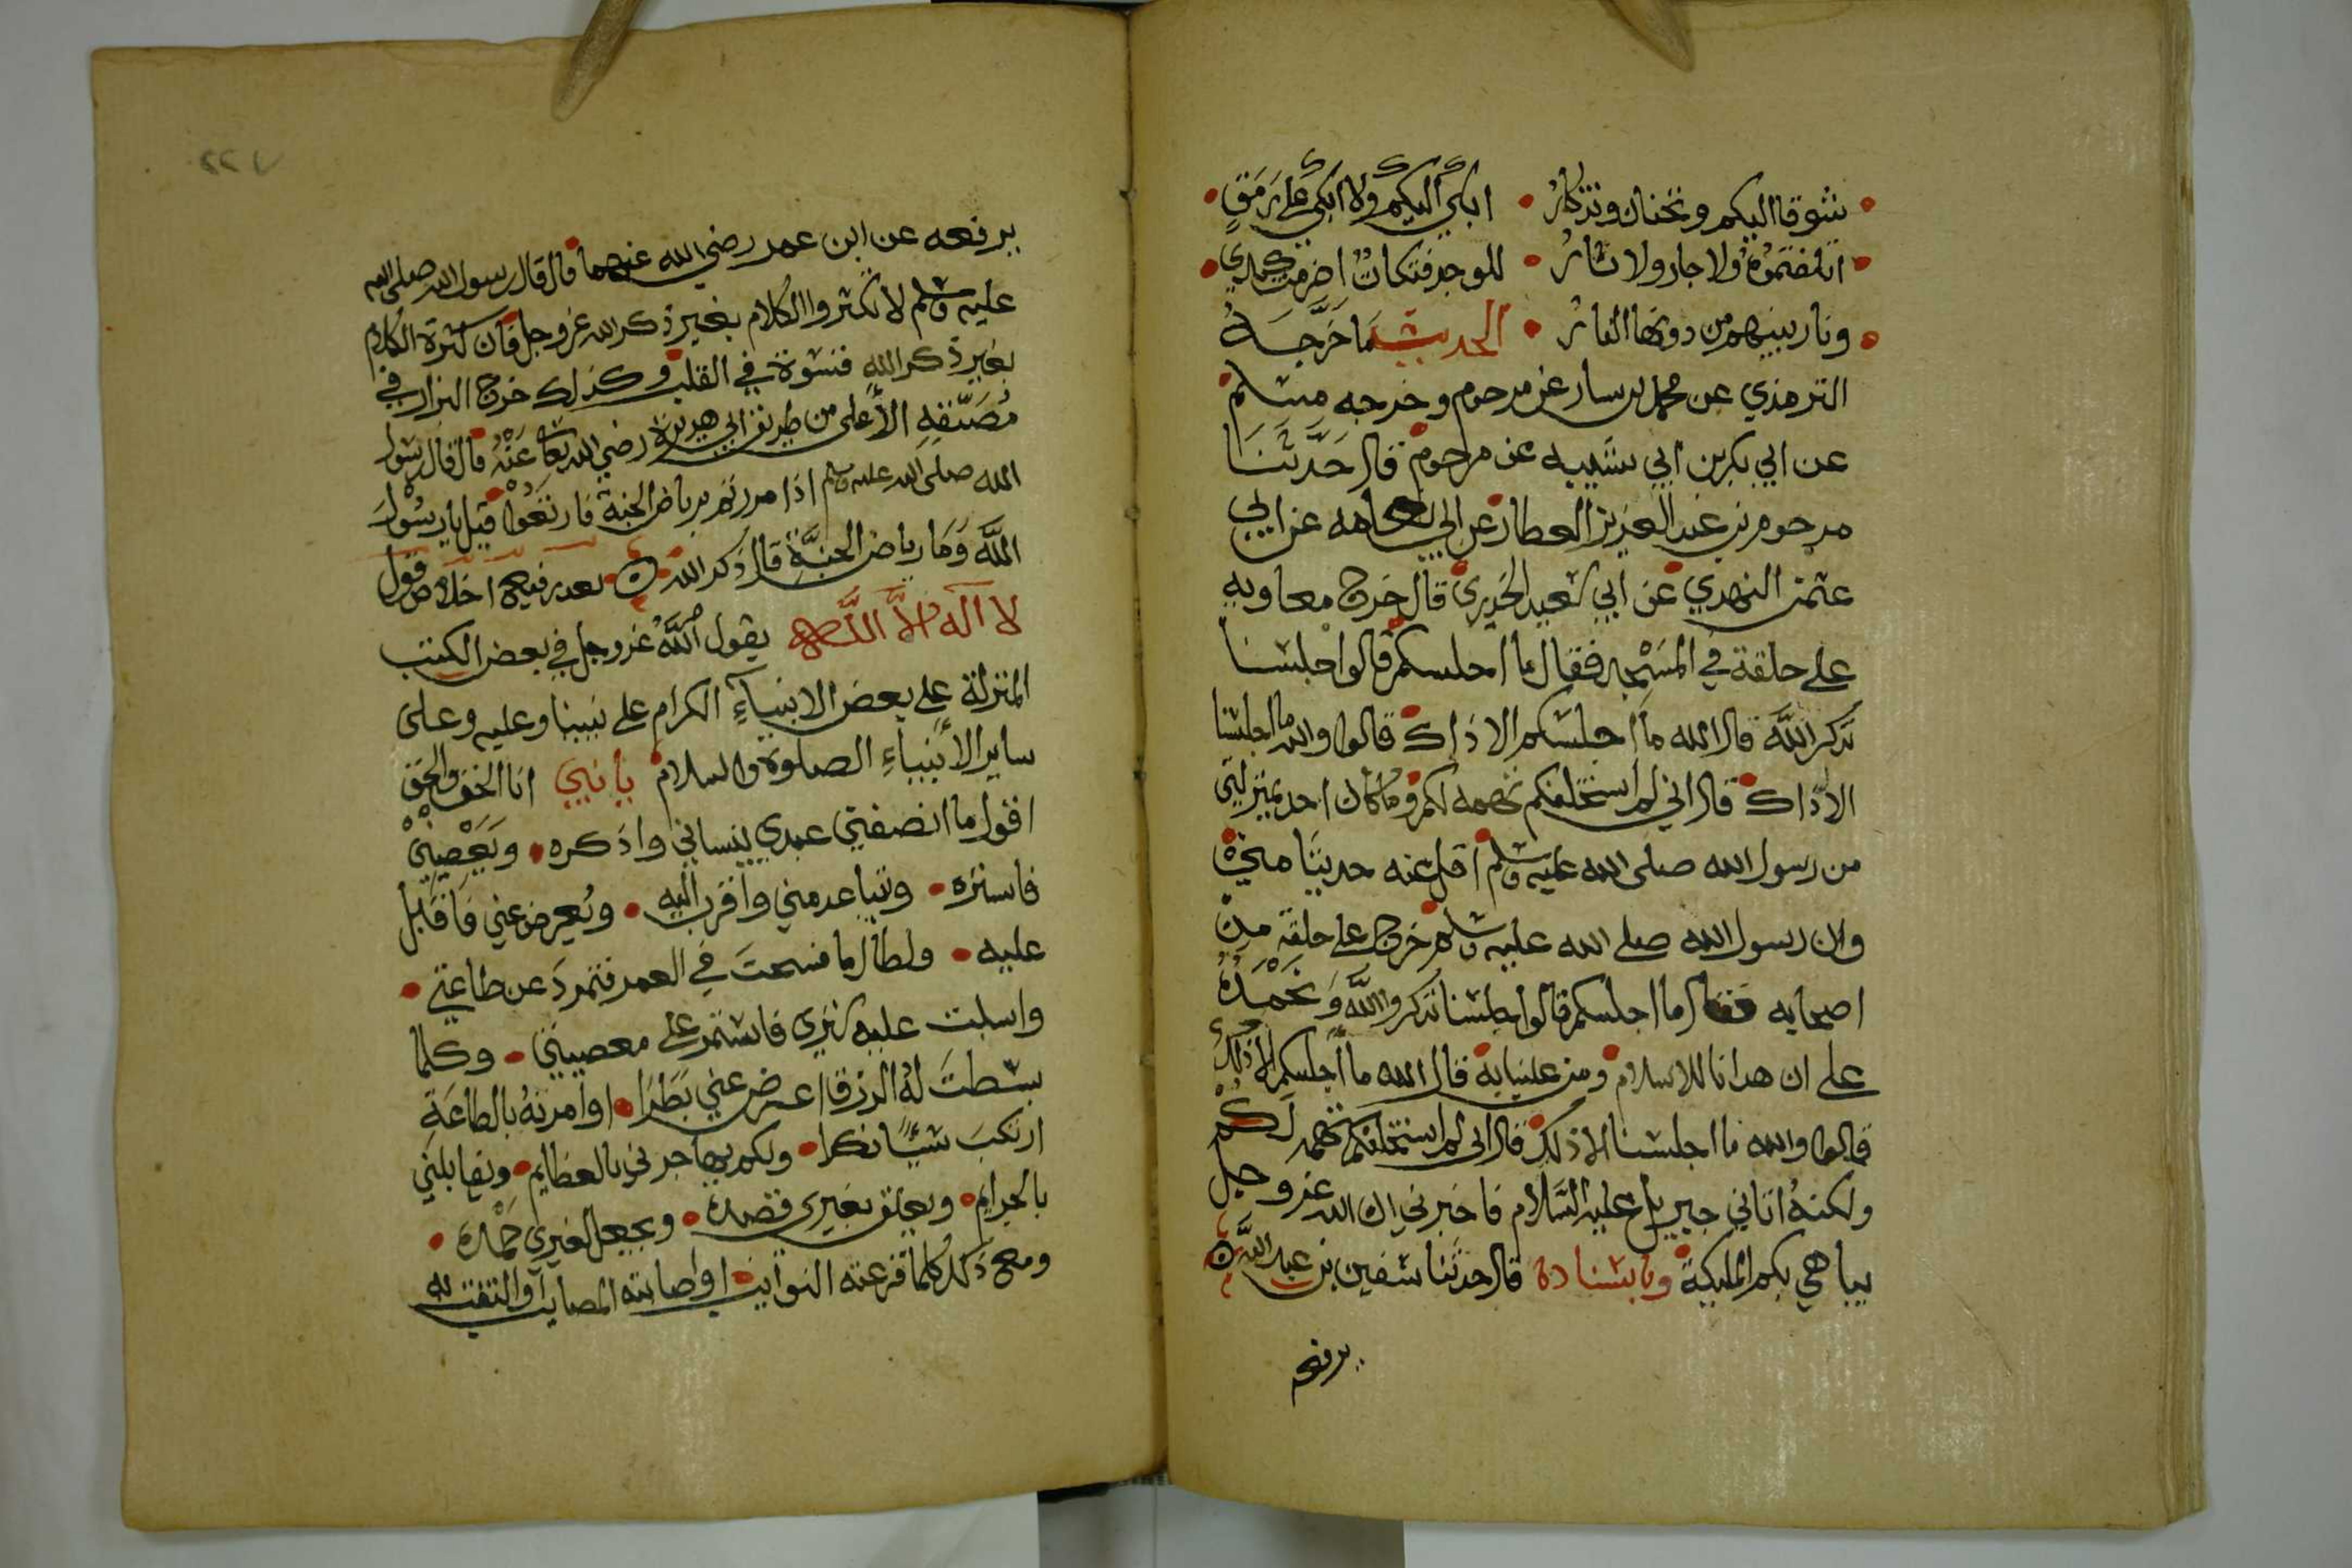 شوقا اليكم وتحنان وتذكار • ابكي اليكم ولا ابكي على رمق •
اتلفتموه ولا جار ولا ثار • للوجد فتكات اضرمت كبدي •
ونار بينهم من دونها النار • الحديث ما خرجه
الترمذي عن محمد بن بسار عن مرحوم وخرجه مسلم
عن ابي بكر بن ابي شيبه عن مرحوم قال حدثنا
مرحوم بن عبد العزيز العطار عن ابي نعامه عن ابي
عثمن النهدي عن ابي سعيد الخدري قال خرج معاويه
على حلقة في المسجد فقال ما اجلسكم قالوا جلسنا
نذكر الله قال الله ما اجلسكم الا ذاك قالوا والله ما اجلسنا
الا ذاك قال اني لم استحلفكم تهمه لكم وما كان احد بمنزلتي
من رسول الله صلى الله عليه وسلم اقل عنه حديثا مني
وان رسول الله صلى الله عليه وسلم خرج على حلقة من
اصحابه فقال ما اجلسكم قالوا جلسنا نذكروا الله ونحمده
على ان هدانا للاسلام ومن علينا به قال الله ما اجلسكم الا ذلك
قالوا والله ما اجلسنا الا ذلك قال اني لم استحلفكم تهمه لكم
ولكنه اتاني جبريل عليه السلام فاخبرني ان الله عز وجل
يباهي بكم المليكة وباسناده قال حدثنا سفين بن عبد الله
يرفعه
يرفعه عن ابن عمر رضي الله عنهما قال قال رسول الله صلى الله
عليه وسلم لا تكثروا الكلام بغير ذكر الله عز وجل فان كثرة الكلام
بغير ذكر الله قسوة في القلب وكذلك خرج البزار في
مصنفه الاعلى من طريق ابي هريرة رضي الله تعا عنه قال قال رسول
الله صلى الله عليه وسلم اذا مررتم برياض الجنة فارتعوا قيل يا رسول
الله وما رياض الجنة قال ذكر الله اخلاص قول
لا اله الا الله يقول الله عز وجل في بعض الكتب
المنزلة على بعض الانبياء الكرام على نبينا وعليه وعلى
ساير الانبياء الصلوة والسلام بانني انا الحق والحق
اقول ما انصفني عبدي ينساني واذكره • ويعصيني
فاستره • ويتباعد مني واقرب اليه • ويعرض عني فاقبل
عليه • ولطال ما فسحت في العمر فتمرد عن طاعتي •
واسبلت عليه ستري فاستمر على معصيتي • وكلما
بسطت له الرزق اعرض عني بطرا • او امرته بالطاعة
ارتكب شيئا نكرا • ولكم يهاجرني بالعظايم • ويقابلني
بالحرايم • ويعلق بغيري قصده • ويجعل لغيري حمده •
ومع ذلك كلما قرعته النوايب او اصابته المصايب والتفت له